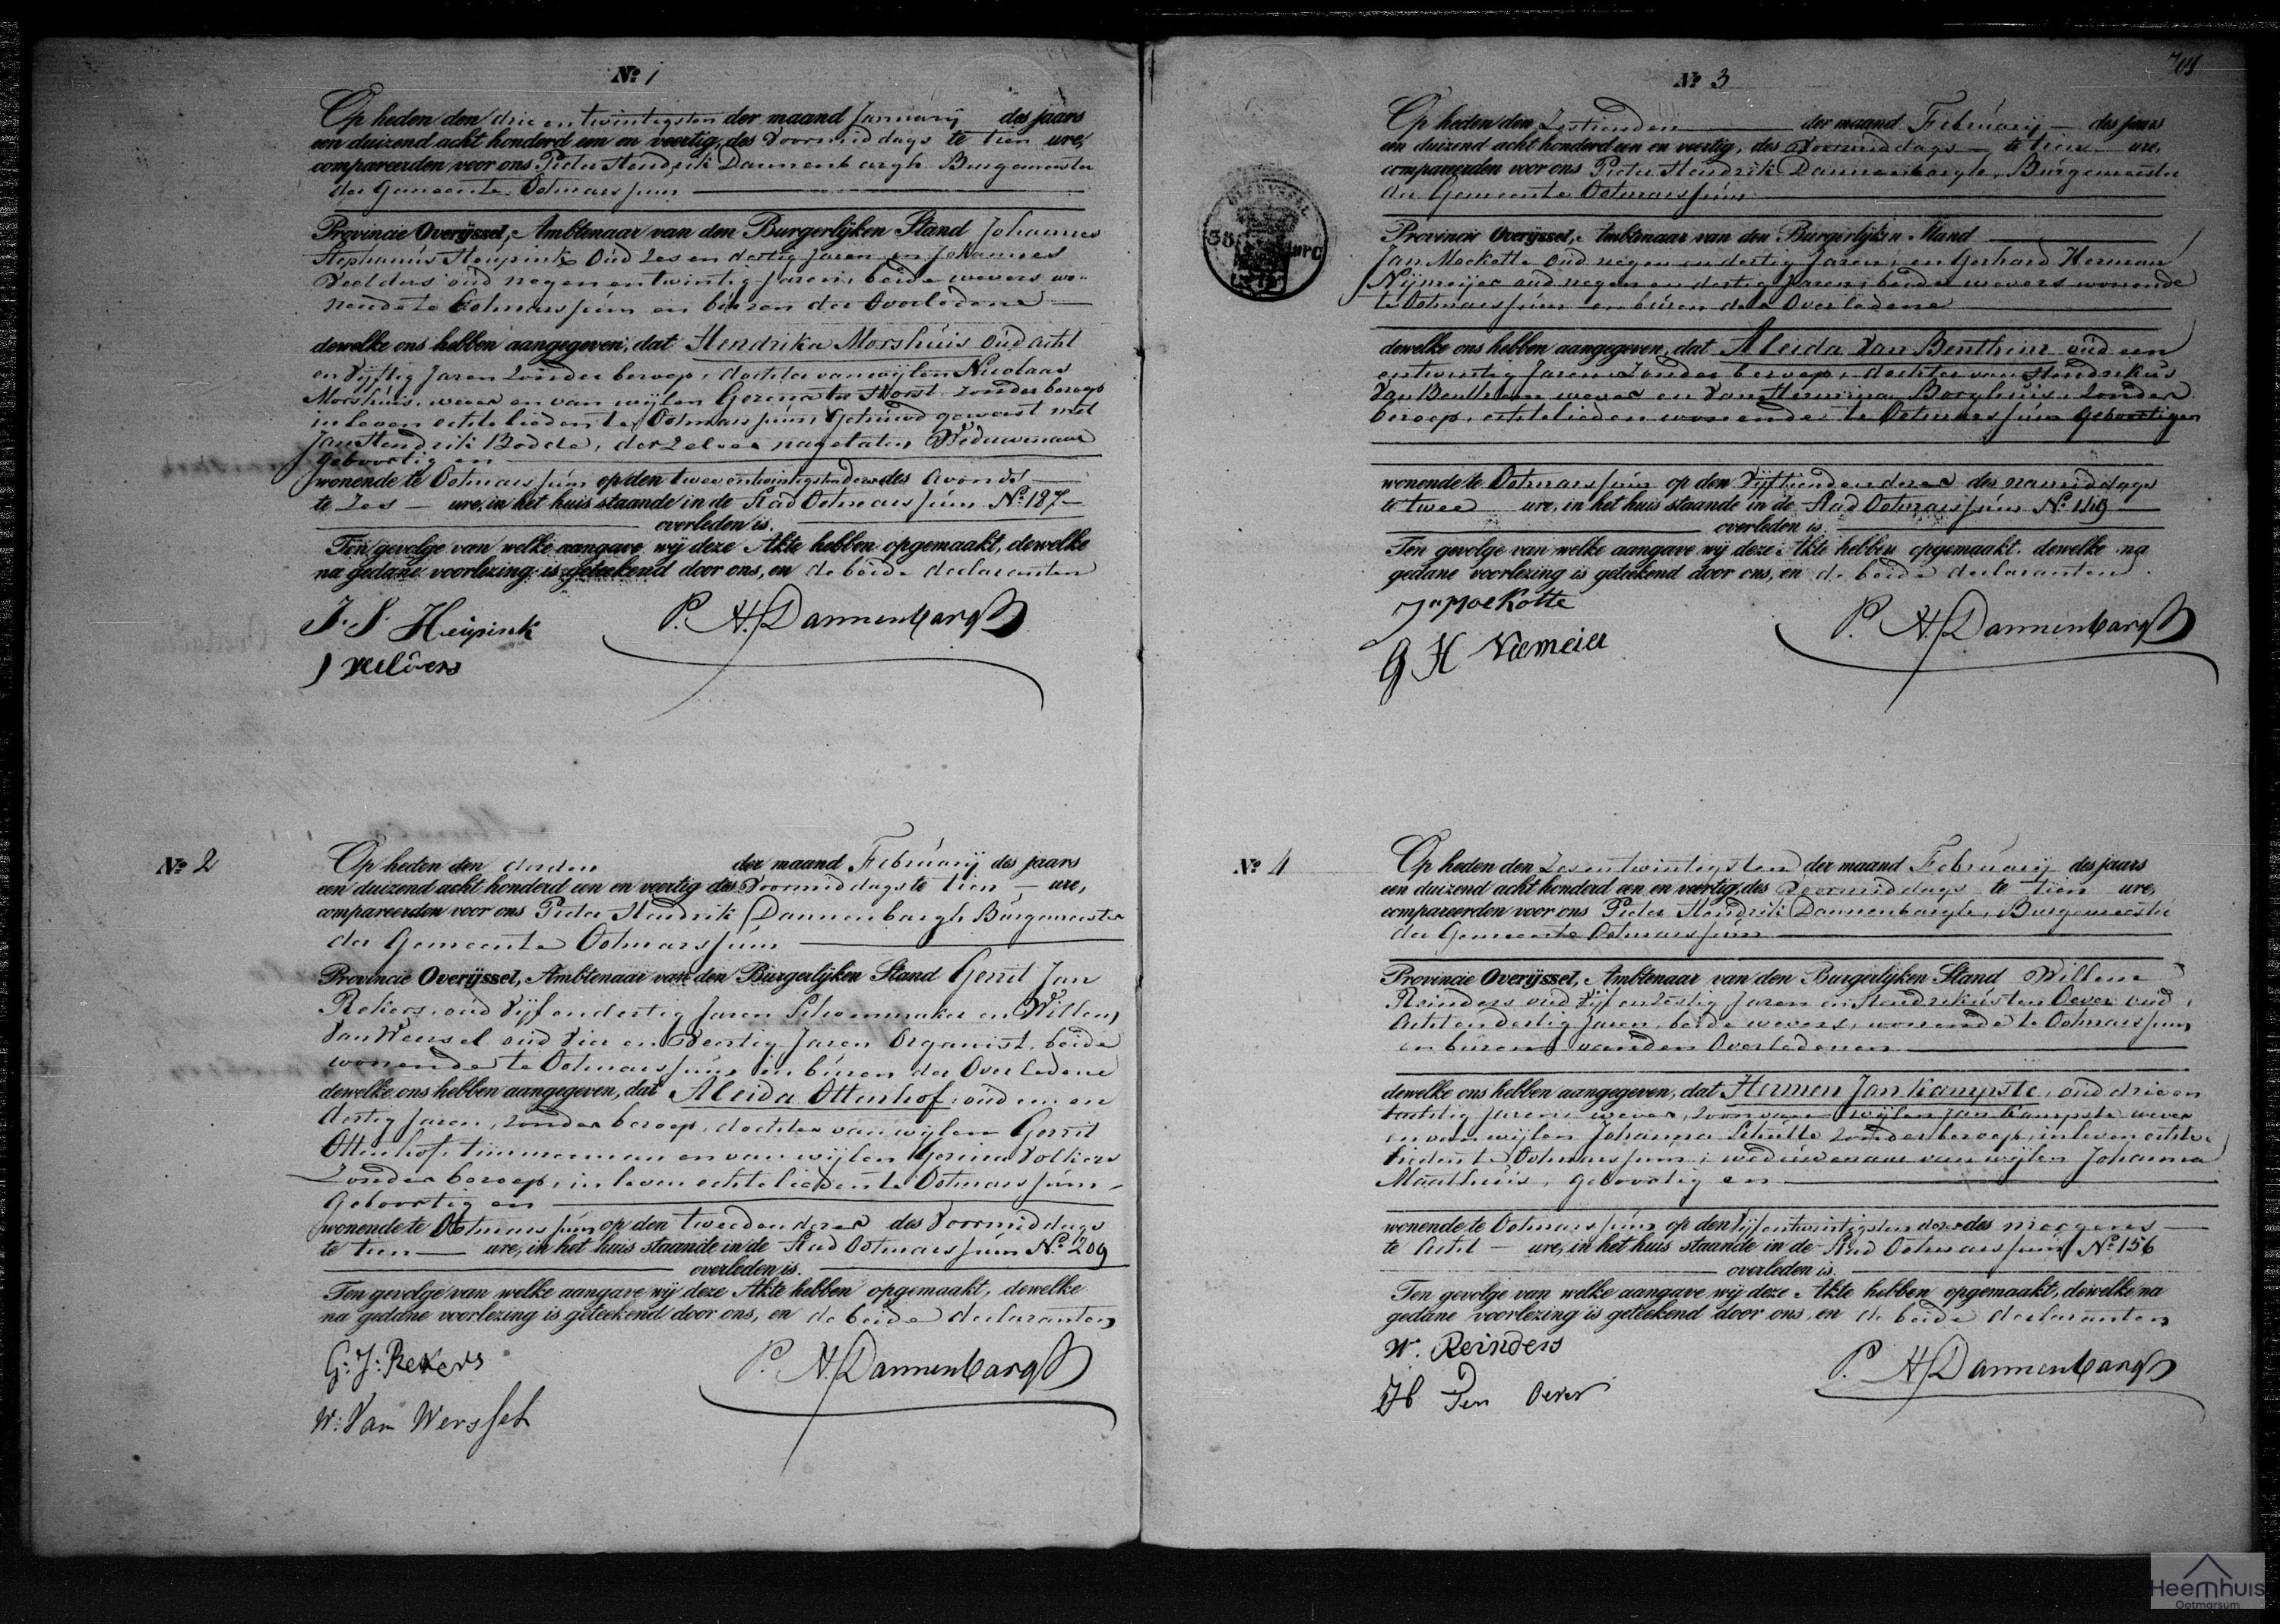 No 1
Op heden den drie en twintigsten der maand Januarij des jaars
een duizend acht honderd een en veertig, des Voormiddags te tien ure,
compareerden voor ons Pieter Hendrik Dannenbargh Burgemeester
der Gemeente Ootmarssum
Provincie Overijssel, Ambtenaar van den Burgerlijken Stand Johannes
Stephanus Heupink oud Zes en dertig Jaren en Johannes
Veelders oud negen en twintig Jaren, beide wevers wo-
nende te Ootmarssum en buren der Overledene
dewelke ons hebben aangegeven, dat Hendrika Morshuis oud acht
en Vijftig Jaren Zonder beroep, dochter van wijlen Nicolaas
Morshuis, wever en van wijlen Gezina ter Horst zonder beroep
in leven echtelieden te Ootmarssum, Gehuwd geweest met
Jan Hendrik Bodde, derzelver nagelaten Weduwenaar
Geboortig en
wonende te Ootmarssum op den twee en twintigsten dezer des Avonds
te Zes ure, in het huis staande in de Stad Ootmarssum No 187
overleden is.
Ten gevolge van welke aangave wij deze Akte hebben opgemaakt, dewelke
na gedane voorlezing is geteekend door ons, en de beide declaranten
J. S. Heupink P. H. Dannenbargh
J Veelders
No 2
Op heden den derden der maand Februarij des jaars
een duizend acht honderd een en veertig des Voormiddags te tien ure,
compareerden voor ons Pieter Hendrik Dannenbargh Burgemeester
der Gemeente Ootmarssum
Provincie Overijssel, Ambtenaar van den Burgerlijken Stand Gerrit Jan
Rekers, oud Vijf en dertig Jaren Schoenmaker en Willem
Van Wersel oud Vier en Veertig Jaren Organist, beide
wonende te Ootmarssum en buren der Overledene
dewelke ons hebben aangegeven, dat Aleida Ottenhof, oud een en
dertig Jaren, zonder beroep, dochter van wijlen Gerrit
Ottenhof, timmerman en van wijlen Gesina Volkers
Zonder beroep, in leven echtelieden te Ootmarssum
Geboortig en
wonende te Ootmarssum op den tweeden dezer des Voormiddags
te tien ure, in het huis staande in de Stad Ootmarssum No 209
overleden is.
Ten gevolge van welke aangave wij deze Akte hebben opgemaakt, dewelke
na gedane voorlezing is geteekend door ons, en de beide declaranten
G: J: Rekers P. H. Dannenbargh
W: Van Werssel
No 3
Op heden den Zestienden der maand Februarij des jaars
een duizend acht honderd een en veertig, des Voormiddags te tien ure,
compareerden voor ons Pieter Hendrik Dannenbargh, Burgemeester
der Gemeente Ootmarssum
Provincie Overijssel, Ambtenaar van den Burgerlijken Stand
Jan Mockotte oud negen en dertig Jaren, en Gerhard Herman
Nijmeijer oud negen en dertig Jaren, beide wevers wonende
te Ootmarssum en buren der Overledene
dewelke ons hebben aangegeven, dat Aleida Van Benthem oud een
en twintig Jaren Zonder beroep, dochter van Hendrikus
Van Benthem wever en Van Hermina Borghuis, Zonder
beroep, echtelieden wonende te Ootmarssum Geboortig en
wonende te Ootmarssum op den Vijftienden dezer des namiddags
te twee ure, in het huis staande in de Stad Ootmarssum No 149
overleden is.
Ten gevolge van welke aangave wij deze Akte hebben opgemaakt, dewelke na
gedane voorlezing is geteekend door ons, en de beide declaranten.
Jn Moekotte P. H. Dannenbargh
G H Niemeier
No 4
Op heden den Zes en twintigsten der maand Februarij des jaars
een duizend acht honderd een en veertig, des Voormiddags te tien ure,
compareerden voor ons Pieter Hendrik Dannenbargh, Burgemeester
der Gemeente Ootmarssum
Provincie Overijssel, Ambtenaar van den Burgerlijken Stand Willem
Reinders oud Vijf en Zestig Jaren en Hendrikus ten Oever oud
Acht en dertig Jaren, beide wevers, wonende te Ootmarssum
en buren van den Overledenen
dewelke ons hebben aangegeven, dat Hermen Jan Kampste, oud drie en
tachtig Jaren, wever, Zoon van wijlen Jan Kampste wever
en van wijlen Johanna Schutte Zonder beroep, in leven echte-
lieden te Ootmarssum, weduwenaar van wijlen Johanna
Maathuis, Geboortig en
wonende te Ootmarssum op den Vijf en twintigsten dezer des morgens
te Acht ure, in het huis staande in de Stad Ootmarssum No 156
overleden is.
Ten gevolge van welke aangave wij deze Akte hebben opgemaakt, dewelke na
gedane voorlezing is geteekend door ons, en de beide declaranten
W. Reinders P. H. Dannenbargh
H Ten Oever
Heemhuis
Ootmarsum